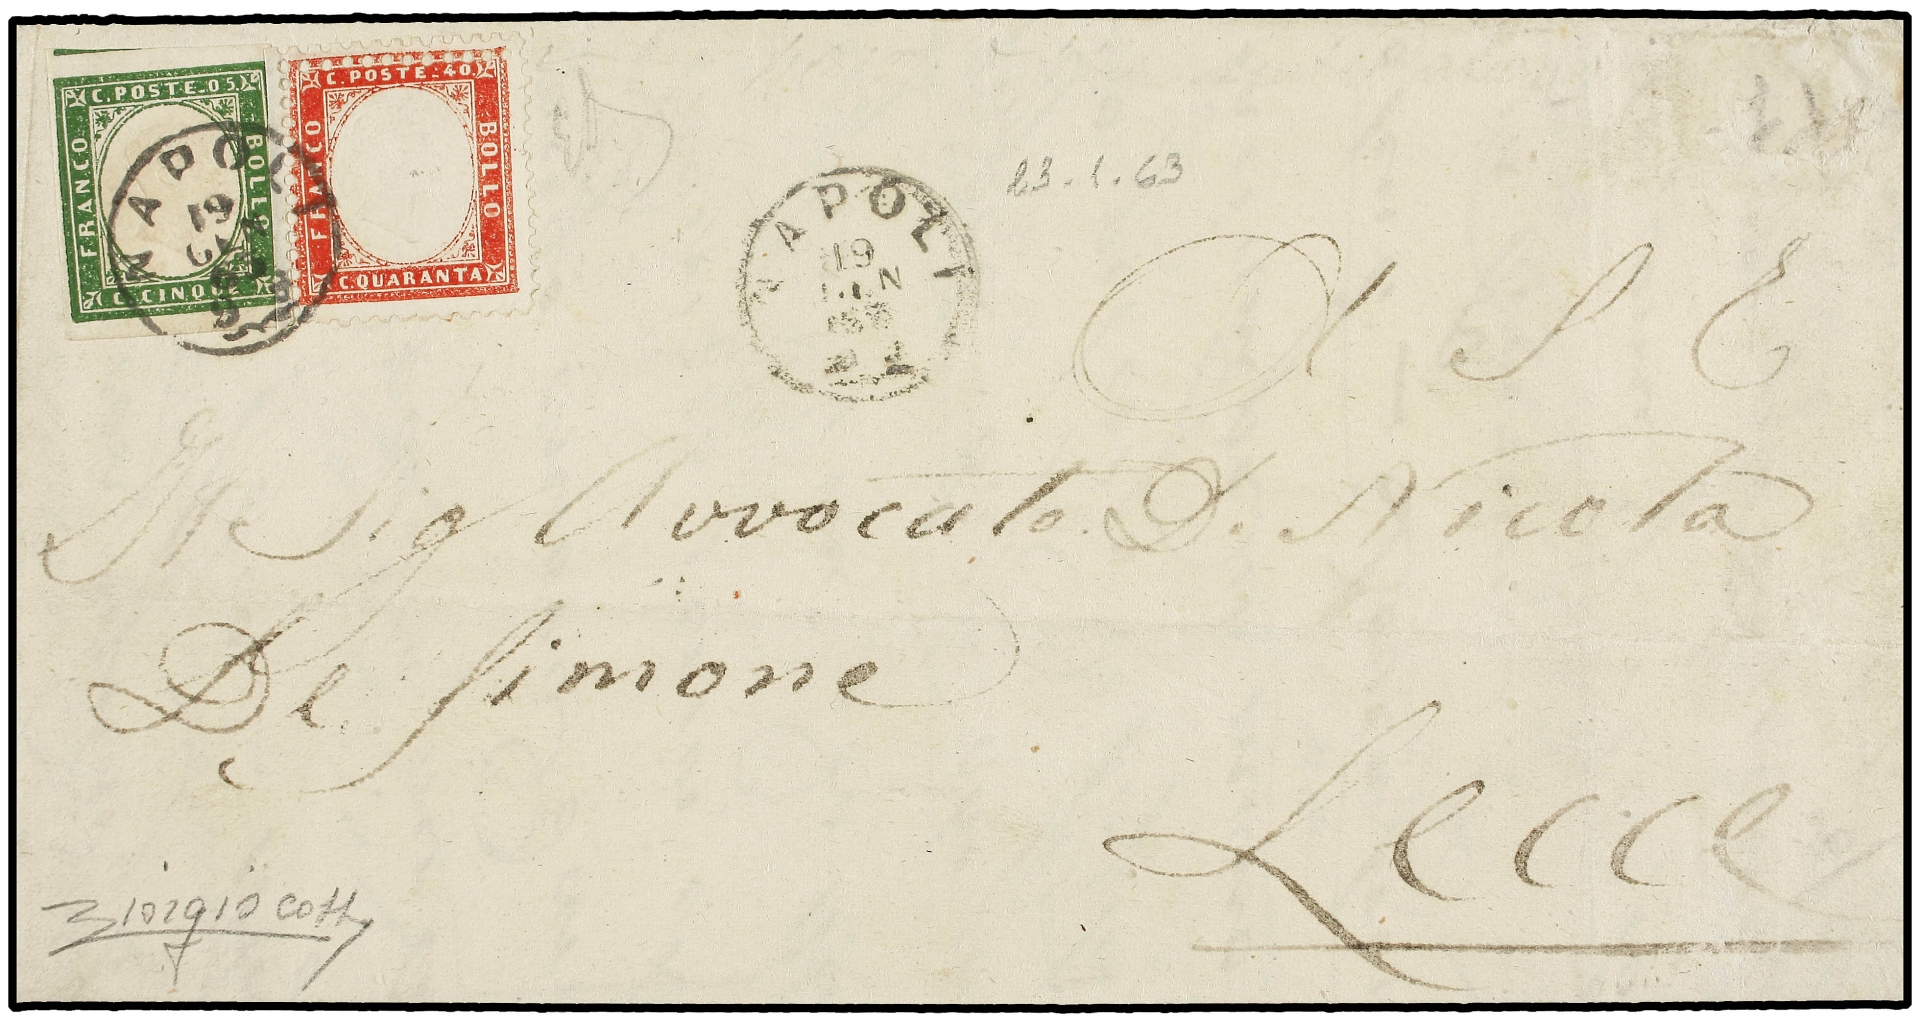 C. POSTE. 05.
FRANCO
BOLLO
C. CINQUE
C. POSTE. 40.
FRANCO
BOLLO
C. QUARANTA
NAPOLI
19
NAPOLI
19
23.1.63
A S E
Sig Avvocato D. Nicola
De Simone
Lecce